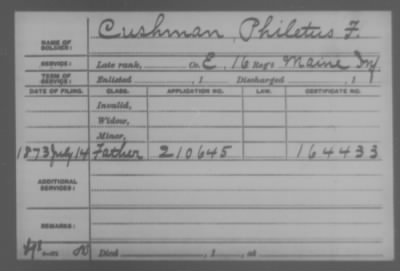 NAME OF SOLDIER: Cushman, Philetus F.
SERVICE: Late rank, Co. E, 16 Reg't Maine Inf
TERM OF SERVICE: Enlisted , 1 Discharged , 1
DATE OF FILING. CLASS. APPLICATION NO. LAW. CERTIFICATE NO.
Invalid,
Widow,
Minor,
1873 July 14 Father 210645 164433
ADDITIONAL SERVICES:
REMARKS:
Died , 1 , at